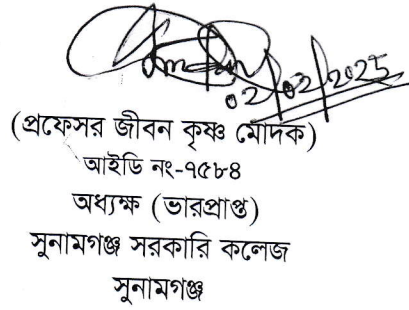 02/02/2025
(প্রফেসর জীবন কৃষ্ণ মোদক)
আইডি নং-৭৫৮৪
অধ্যক্ষ (ভারপ্রাপ্ত)
সুনামগঞ্জ সরকারি কলেজ
সুনামগঞ্জ